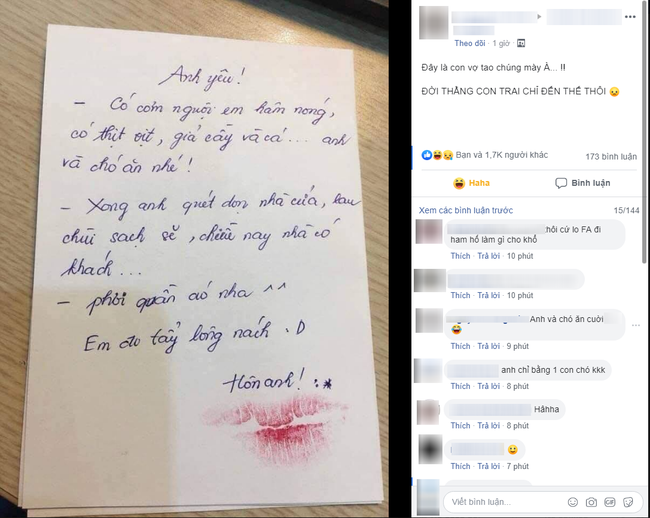 Anh yêu!
– Có cơm nguội em hâm nóng,
có thịt vịt, giả cầy và cá... anh
và chó ăn nhé!
– Xong anh quét dọn nhà cửa, lau
chùi sạch sẽ, chiều nay nhà có
khách...
– phơi quần áo nha ^^
Em đi tẩy lông nách :D
Hôn anh! :*
Theo dõi · 1 giờ ·
Đây là con vợ tao chúng mày À... !!
ĐỜI THẰNG CON TRAI CHỈ ĐẾN THẾ THÔI 😞
Bạn và 1,7K người khác
173 bình luận
Haha
Bình luận
Xem các bình luận trước
15/144
thôi cứ lo FA đi
ham hố làm gì cho khổ
Thích · Trả lời · 10 phút
Thích · Trả lời · 10 phút
Anh và chó ăn cười
🤣
Thích · Trả lời · 9 phút
anh chỉ bằng 1 con chó kkk
Thích · Trả lời · 8 phút
Hâhha
Thích · Trả lời · 8 phút
🙂
Thích · Trả lời · 7 phút
Viết bình luận...